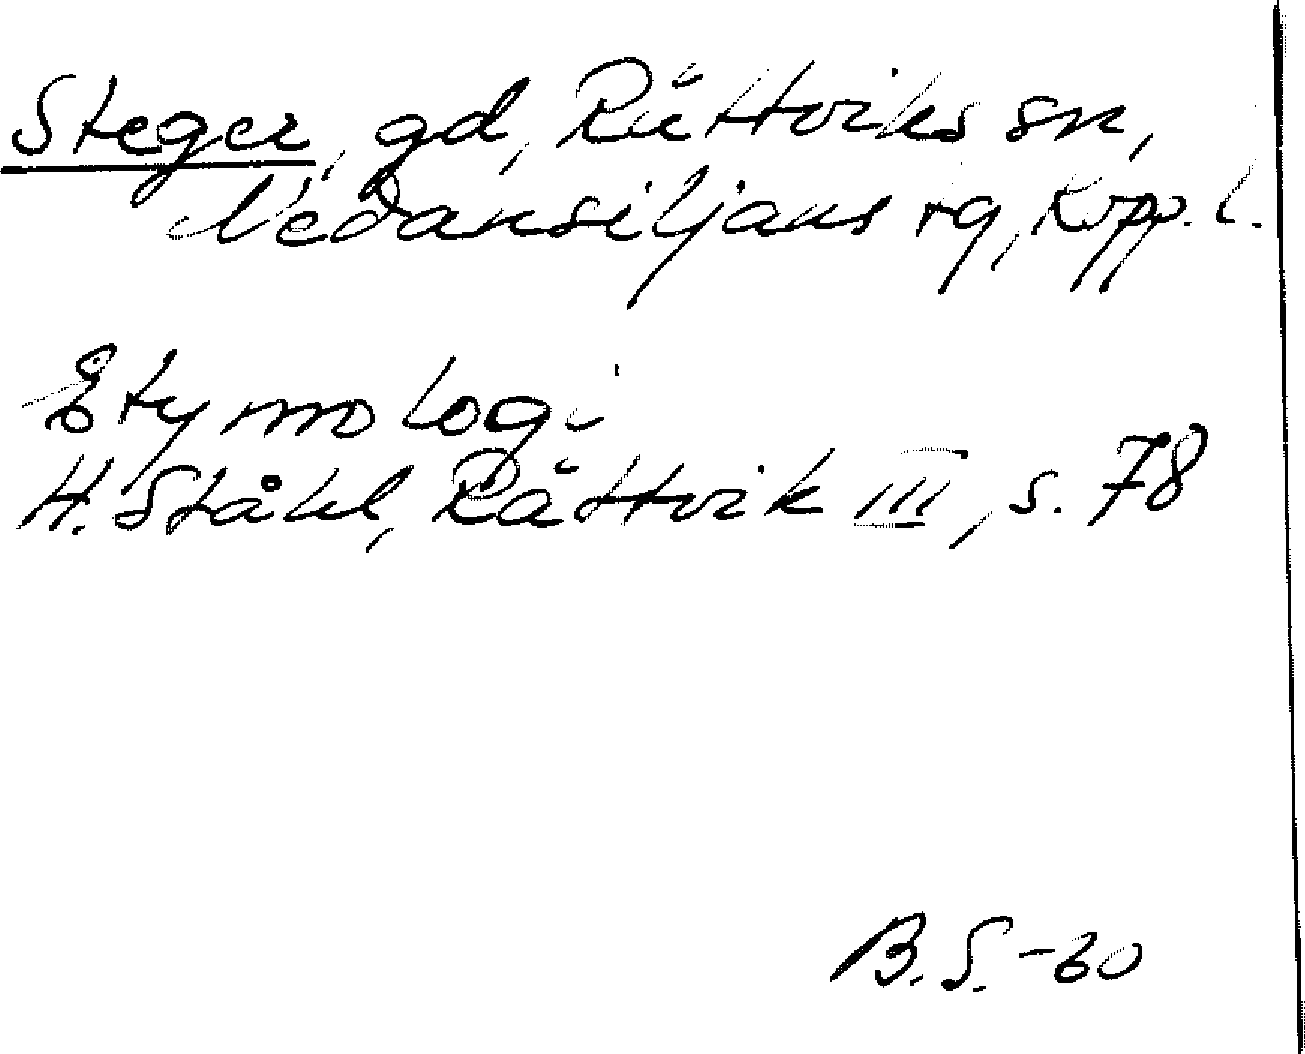 Steger, gd, Rättviks sn,
Nedansiljans tg, Kopp. l.
Etymologi
H. Ståhl, Rättvik III, s. 78
B. S. -60